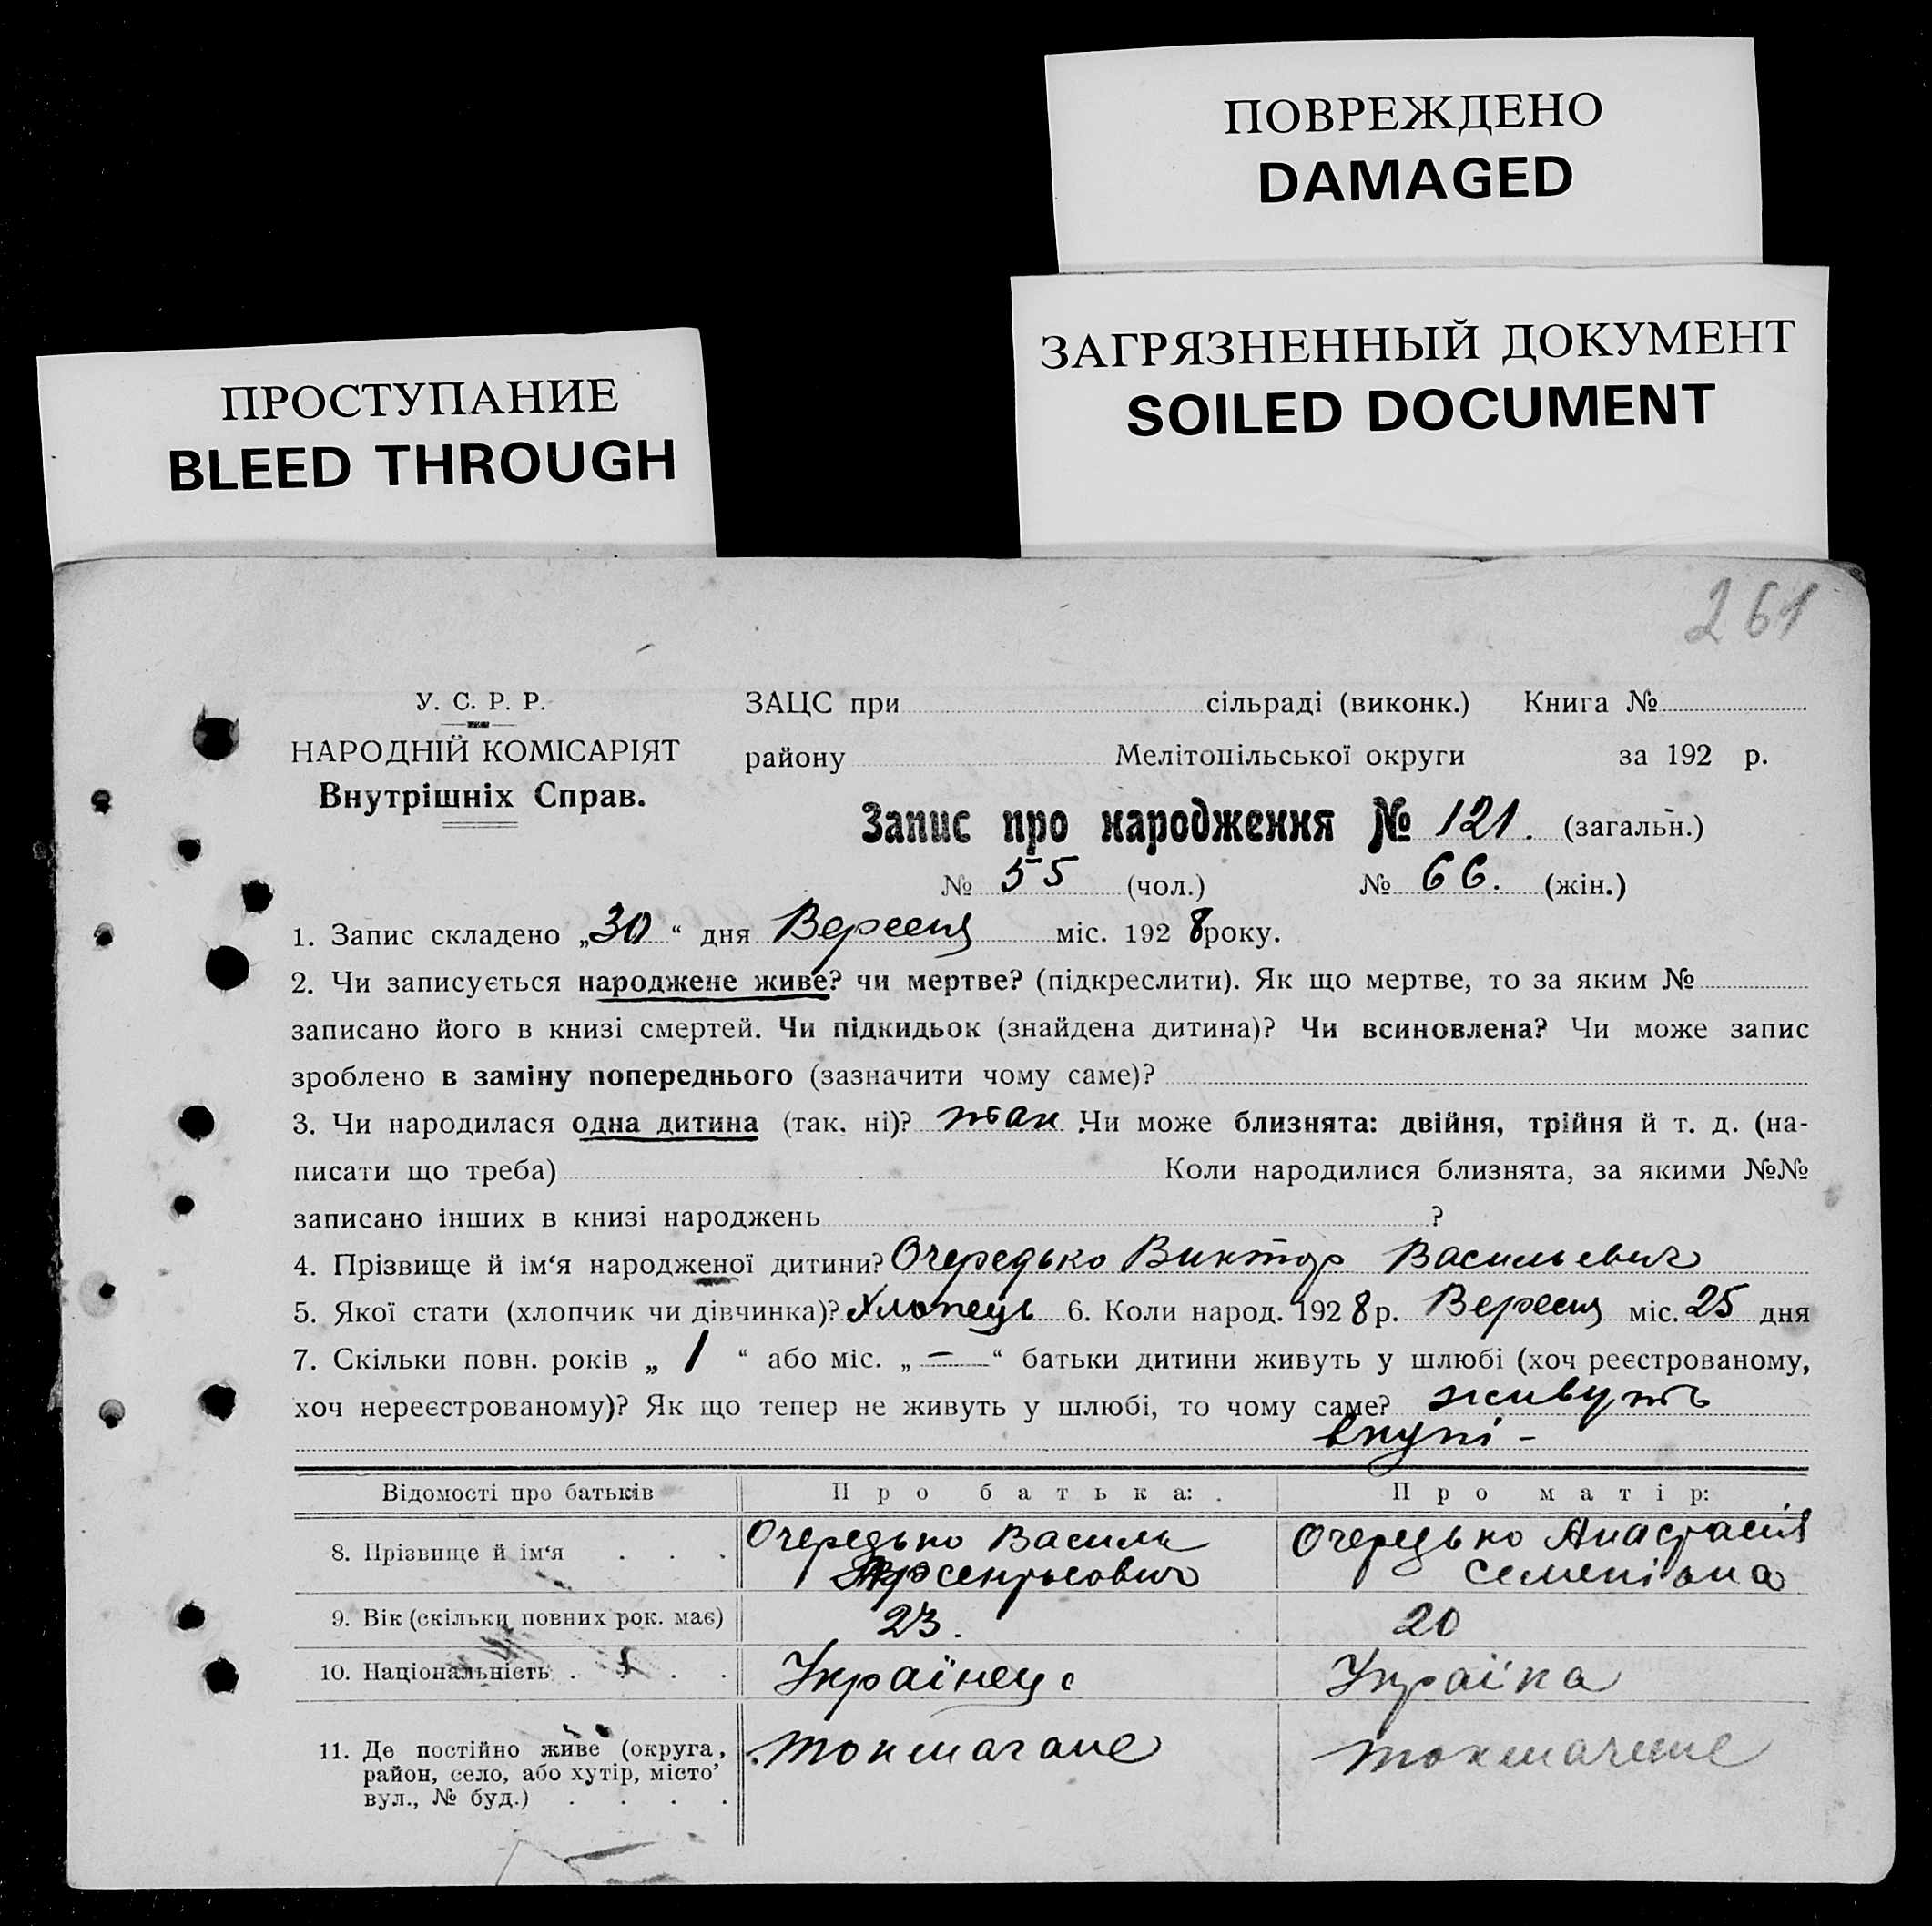 ПОВРЕЖДЕНО
DAMAGED
ЗАГРЯЗНЕННЫЙ ДОКУМЕНТ
SOILED DOCUMENT
ПРОСТУПАНИЕ
BLEED THROUGH
261
У. С. Р. Р.
НАРОДНІЙ КОМІСАРІЯТ
Внутрішніх Справ.
ЗАЦС при сільраді (виконк.) Книга №
району Мелітопільської округи за 192 р.
Запис про народження № 121. (загальн.)
№ 55 (чол.) № 66. (жін.)
1. Запис складено „30“ дня Вересня міс. 1928 року.
2. Чи записується народжене живе? чи мертве? (підкреслити). Як що мертве, то за яким №
записано його в книзі смертей. Чи підкидьок (знайдена дитина)? Чи всиновлена? Чи може запис
зроблено в заміну попереднього (зазначити чому саме)?
3. Чи народилася одна дитина (так, ні)? так Чи може близнята: двійня, трійня й т. д. (на-
писати що треба) Коли народилися близнята, за якими №№
записано інших в книзі народжень ?
4. Прізвище й ім‘я народженої дитини? Очередько Виктор Васильевич
5. Якої стати (хлопчик чи дівчинка)? Хлопець 6. Коли народ. 1928 р. Вересня міс. 25 дня
7. Скільки повн. років „ 1 “ або міс. „ — “ батьки дитини живуть у шлюбі (хоч реєстрованому,
хоч нереєстрованому)? Як що тепер не живуть у шлюбі, то чому саме? живуть
вкупі -
Відомості про батьків Про батька: Про матір:
8. Прізвище й ім‘я . . . Очередько Василь Очередько Анастасия
Семенівна
9. Вік (скільки повних рок. має) 23. 20
10. Національність . . . . Українець Украïка
11. Де постійно живе (округа,
район, село, або хутір, місто’
вул., № буд.) . . . .